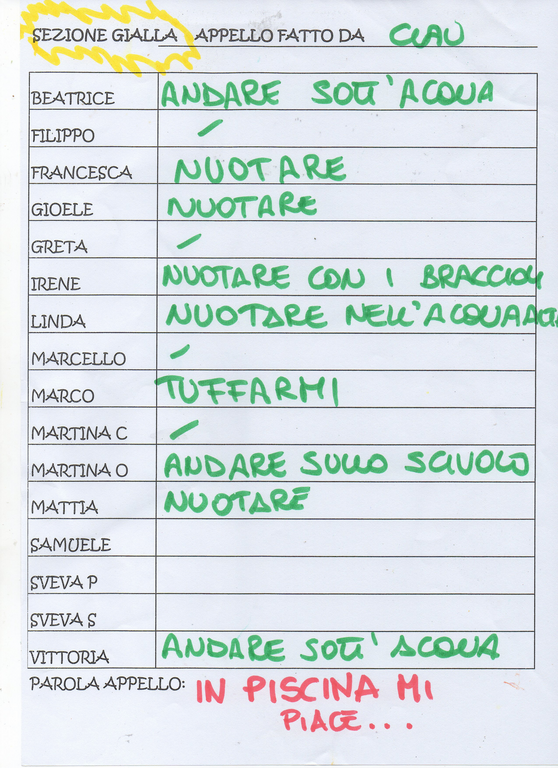 SEZIONE GIALLA APPELLO FATTO DA CLAU
BEATRICE ANDARE SOTT'ACQUA
FILIPPO /
FRANCESCA NUOTARE
GIOELE NUOTARE
GRETA /
IRENE NUOTARE CON I BRACCIOLI
LINDA NUOTARE NELL'ACQUA ALTA
MARCELLO /
MARCO TUFFARMI
MARTINA C /
MARTINA O ANDARE SULLO SCIVOLO
MATTIA NUOTARE
SAMUELE
SVEVA P
SVEVA S
VITTORIA ANDARE SOTT'ACQUA
PAROLA APPELLO: IN PISCINA MI
PIACE...